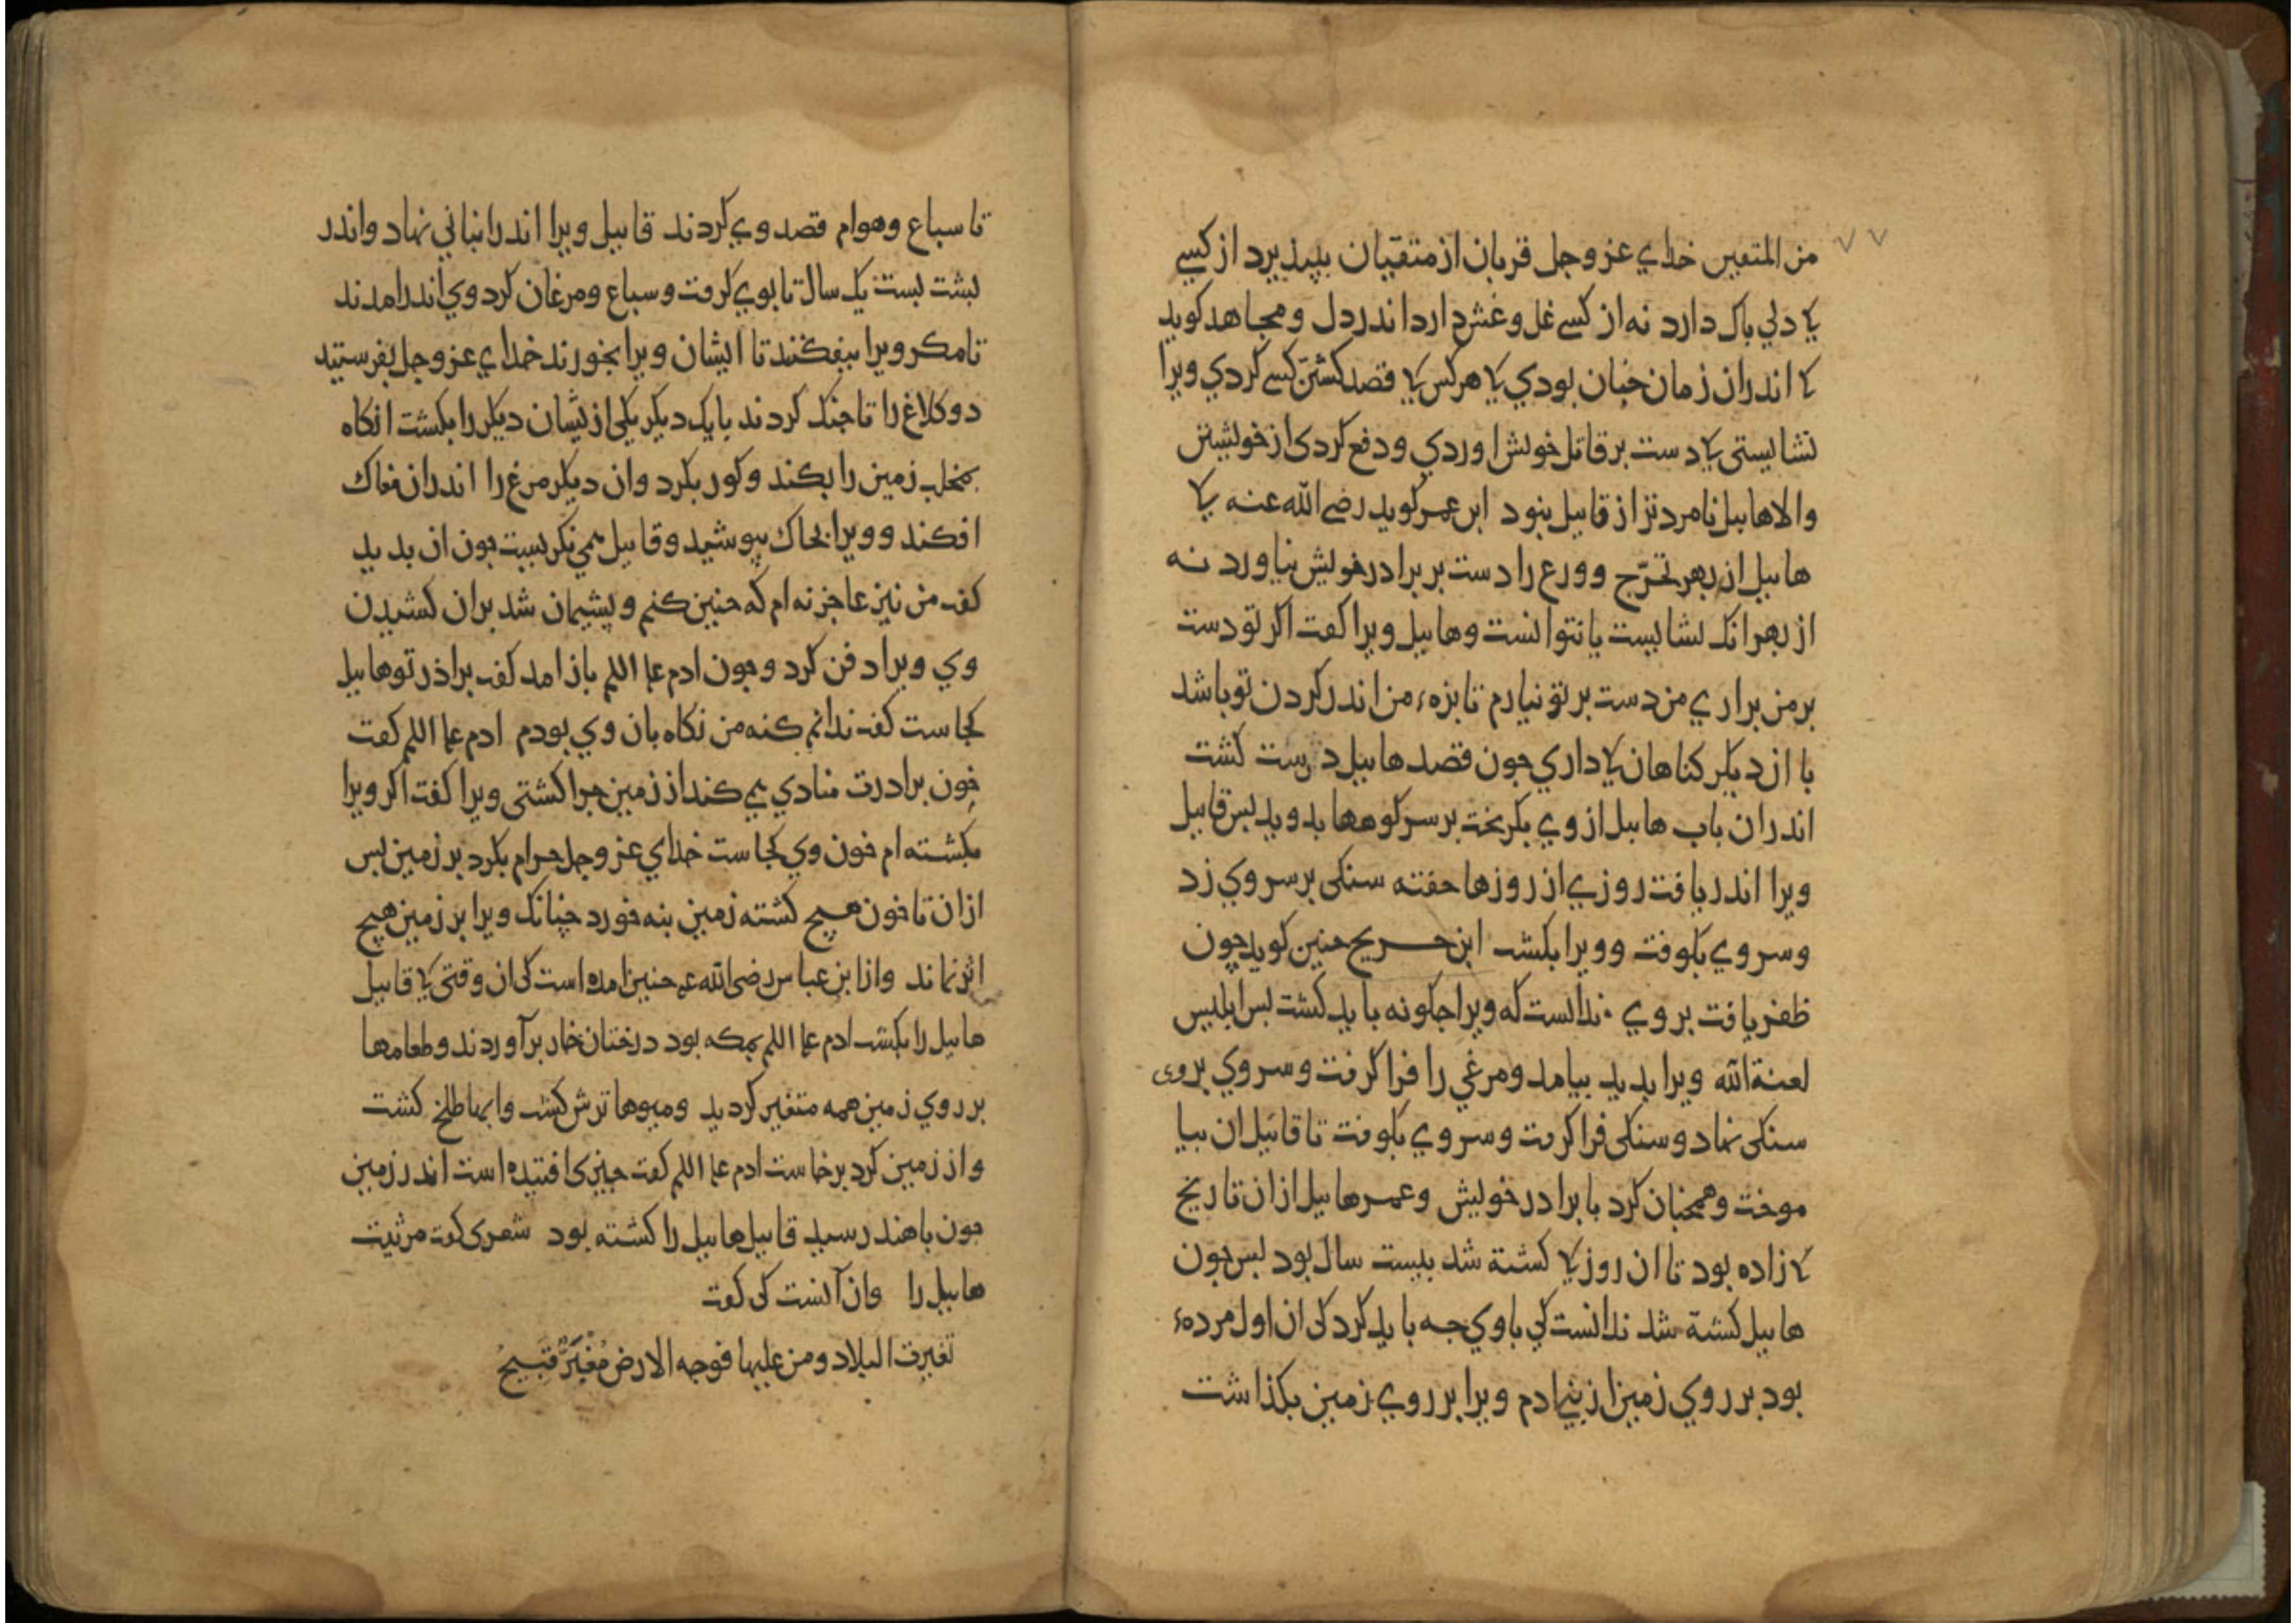 من المتقین خدای عز وجل قربان از متقیان بپذیرد از کسی
کا دلی باک دارد نه از کسی غل وغش دارد اندر دل ومجاهد کوید
کا اندران زمان جنان بودی کا هرکس کا قصد کشتن کسی کردی ویرا
نشایستی کا دست بر قاتل خویش اوردی ودفع کردی از خویشتن
والا هابیل نامردتر از قابیل نبود ابن عمر کوید رضی الله عنه کا
هابیل از بهر تحرّج وورع را دست بر برادر خویش نیاورد نه
از بهر انک نشایست یا نتوانست وهابیل ویرا کفت اکر تو دست
بر من براری من دست بر تو نیارم تا بزهٔ من اندر کردن تو باشد
با از دیکر کناهان کا داری جون قصد هابیل درست کشت
اندران باب هابیل از وی بکریخت بر سر کوهها بدوید بس قابیل
ویرا اندر یافت روزی از روزها خفته سنکی بر سر وی زد
وسر وی بکوفت وویرا بکشت ابن جریح جنین کوید چون
ظفر یافت بر وی ندانست که ویرا جکونه باید کشت بس ابلیس
لعنة الله ویرا بدید بیامد ومرغی را فرا کرفت وسر وی بروی
سنکی نهاد وسنکی فرا کرفت وسر وی بکوفت تا قابیل ان بیا
موخت وهمجنان کرد با برادر خویش وعمر هابیل ازان تاریخ
کا زاده بود تا ان روز کا کشته شد بیست سال بود بس جون
هابیل کشتة شد ندانست کی با وی جه باید کرد کی ان اول مردهٔ
بود بر روی زمین از بنی ادم ویرا بر روی زمین بکذاشت
تا سباع وهوام قصد وی کردند قابیل ویرا اندر انبانی نهاد واندر
بشت بست یک سال تا بوی کرفت وسباع ومرغان کرد وی اندر امدند
تا مکر ویرا بیفکند تا ایشان ویرا بخورند خدای عز وجل بفرستید
دو کلاغ را تا جنک کردند با یک دیکر یکی ازیشان دیکر را بکشت انکاه
بمخلب زمین را بکند وکور بکرد وان دیکر مرغ را اندران مغاک
افکند وویرا بخاک ببوشید وقابیل همی نکریست جون ان بدید
کفت من نیز عاجز نه ام که جنین کنم وپشیمان شد بران کشیدن
وی ویرا دفن کرد وجون ادم علم اللم باز امد کفت براذر تو هابیل
کجاست کفت ندانم کنه من نکاه بان وی بودم ادم علم اللم کفت
خون برادرت منادی می کند از زمین جرا کشتی ویرا کفت اکر ویرا
بکشته ام خون وی کجاست خدای عز وجل حرام بکرد بر زمین بس
ازان تا خون هیچ کشته زمین بنه خورد چنانک ویرا بر زمین هیچ
اثر نماند واز ابن عباس رضی الله عنه جنین امده است کی ان وقتی کا قابیل
هابیل را بکشت ادم علم اللم بمکه بود درختان خار برآوردند وطعامها
بر روی زمین همه متغیر کردید ومیوها ترش کشت وابها طلخ کشت
واز زمین کرد برخاست ادم علم اللم کفت جیزی افتیده است اندر زمین
جون باهند رسید قابیل هابیل را کشته بود شعری کفت مرثیت
هابیل را وان آنست کی کفت
تغیرت البلاد ومن علیها فوجه الارض مُغْبَرٌّ قبیحُ